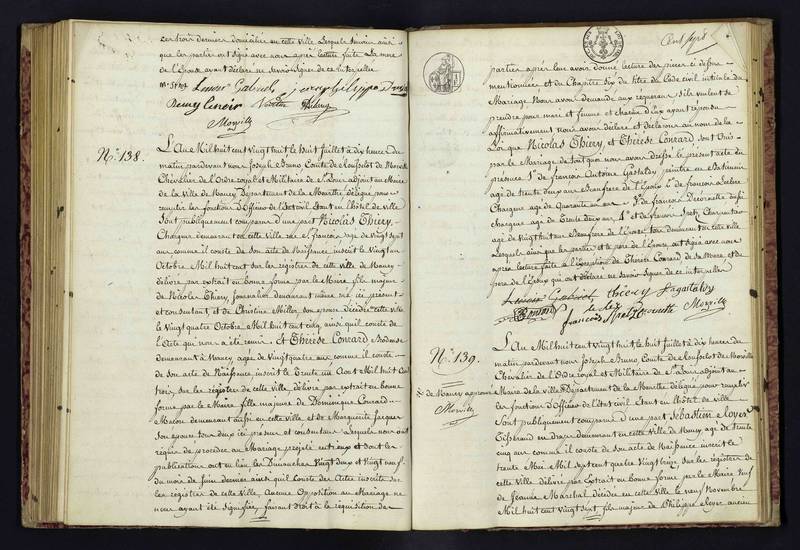 ces trois derniers domiciliés en cette ville lesquels témoins ainsi
que les parties ont signé avec nous après lecture faite La mère
de l'Epoux ayant déclaré ne savoir signer de ce interpellée
Lenoir Gabriel
Remy Lenoir
Morville
N.º 138.
L'An Mil huit cent vingt huit le huit Juillet à dix heures du
matin pardevant nous Joseph Bruno, Comte de
Chevalier de l'Ordre royal et Militaire de St Louis adjoint au Maire
de la Ville de Nancy Département de la Meurthe délégué pour
remplir les fonctions d'Officier de l'état civil Etant en l'hôtel de ville
Sont publiquement comparus d'une part Nicolas Thiery,
Chargeur demeurant en cette ville rue St François agé de Vingt sept
ans comme il conste de son acte de Naissance inscrit le Vingt un
Octobre Mil huit cent sur les régistres de cette ville de Nancy
délivré par extrait en bonne forme par le Maire fils majeur
de Nicolas Thiery, Journalier demeurant même rue ici présent
et consentant, et de Christine Miller son épouse décédée cette ville
le Vingt quatre Octobre Mil huit cent cinq, ainsi qu'il conste de
l'acte qui nous a été remis. Et Thérèse Conrard Brodeuse
demeurant à Nancy agée de Vingt quatre ans comme il conste
de son acte de Naissance inscrit le Trente un Aout Mil huit Cent
trois, sur les régistres de cette ville, délivré par extrait en bonne
forme par le Maire fille majeure de Dominique Conrard
Maçon demeurant aussi en cette ville et de Marguerite Jacquer
son épouse tous deux ici présens et consentans Lesquels nous ont
requis de procéder au Mariage projeté entr'eux et dont les
publications ont eu lieu les Dimanches Vingt deux et Vingt neuf
du mois de Juin dernier ainsi qu'il Conste des Actes inscrits sur
les régistres de cette ville, Aucune Opposition au Mariage ne
nous ayant été signifiée, faisant droit à la réquisition des
Cent sept
parties après leur avoir donné lecture des pièces ci dessus
mentionnées et du Chapitre Six du titre du Code civil intitulé du
Mariage Nous avons demandé aux requérans s'ils veulent se
prendre pour mari et femme et chacun d'eux ayant répondu
affirmativement Nous avons déclaré et déclarons au nom de la
Loi que Nicolas Thiery, et Thérèse Conrard, sont Unis
par le Mariage de tout quoi nous avons dressé le présent acte En
présence 1º de françois Antoine Gastaldy peintre en Batimens
agé de trente deux ans Beaufrère de l'Epoux 2º de françois
Chargeur agé de Quarante six ans 3º de francois Decouvette aussi
chargeur agé de Trente deux ans 4º et de françois Charpentier
agé de Vingt huit ans Beaufrère de l'Epouse tous demeurans en cette ville
Lesquels ainsi que les parties et le père de l'Epouse, ont signé avec nous
après lecture faite à l'Exception de Thérèse Conrard, de sa Mère, et de
père de l'Epoux qui ont déclaré ne savoir signer de ce interpellés
Gabriel thiery f agastaldy
Conrard
françois
Morville
N.º 139.
de Nancy approuvé
Morville
L'An Mil huit cent vingt huit le huit Juillet à dix heures du
matin pardevant nous Joseph Bruno, Comte de
Chevalier de l'Ordre royal et Militaire de St Louis adjoint au
Maire de la Ville Département de la Meurthe délégué pour remplir
les fonctions d'Officier de l'état civil Etant en l'hôtel de ville
Sont publiquement comparus d'une part Sébastien
Tisserand en draps demeurant en cette Ville de Nancy agé de trente
cinq ans comme il conste de son acte de Naissance inscrit le
trente Mai Mil Sept cent quatre Vingt treize sur les régistres de
cette ville délivré par Extrait en bonne forme par le Maire Veuf
de Jeanne Marchal décédée en cette ville le neuf Novembre
Mil huit cent Vingt sept fils majeur de Philippe ancien